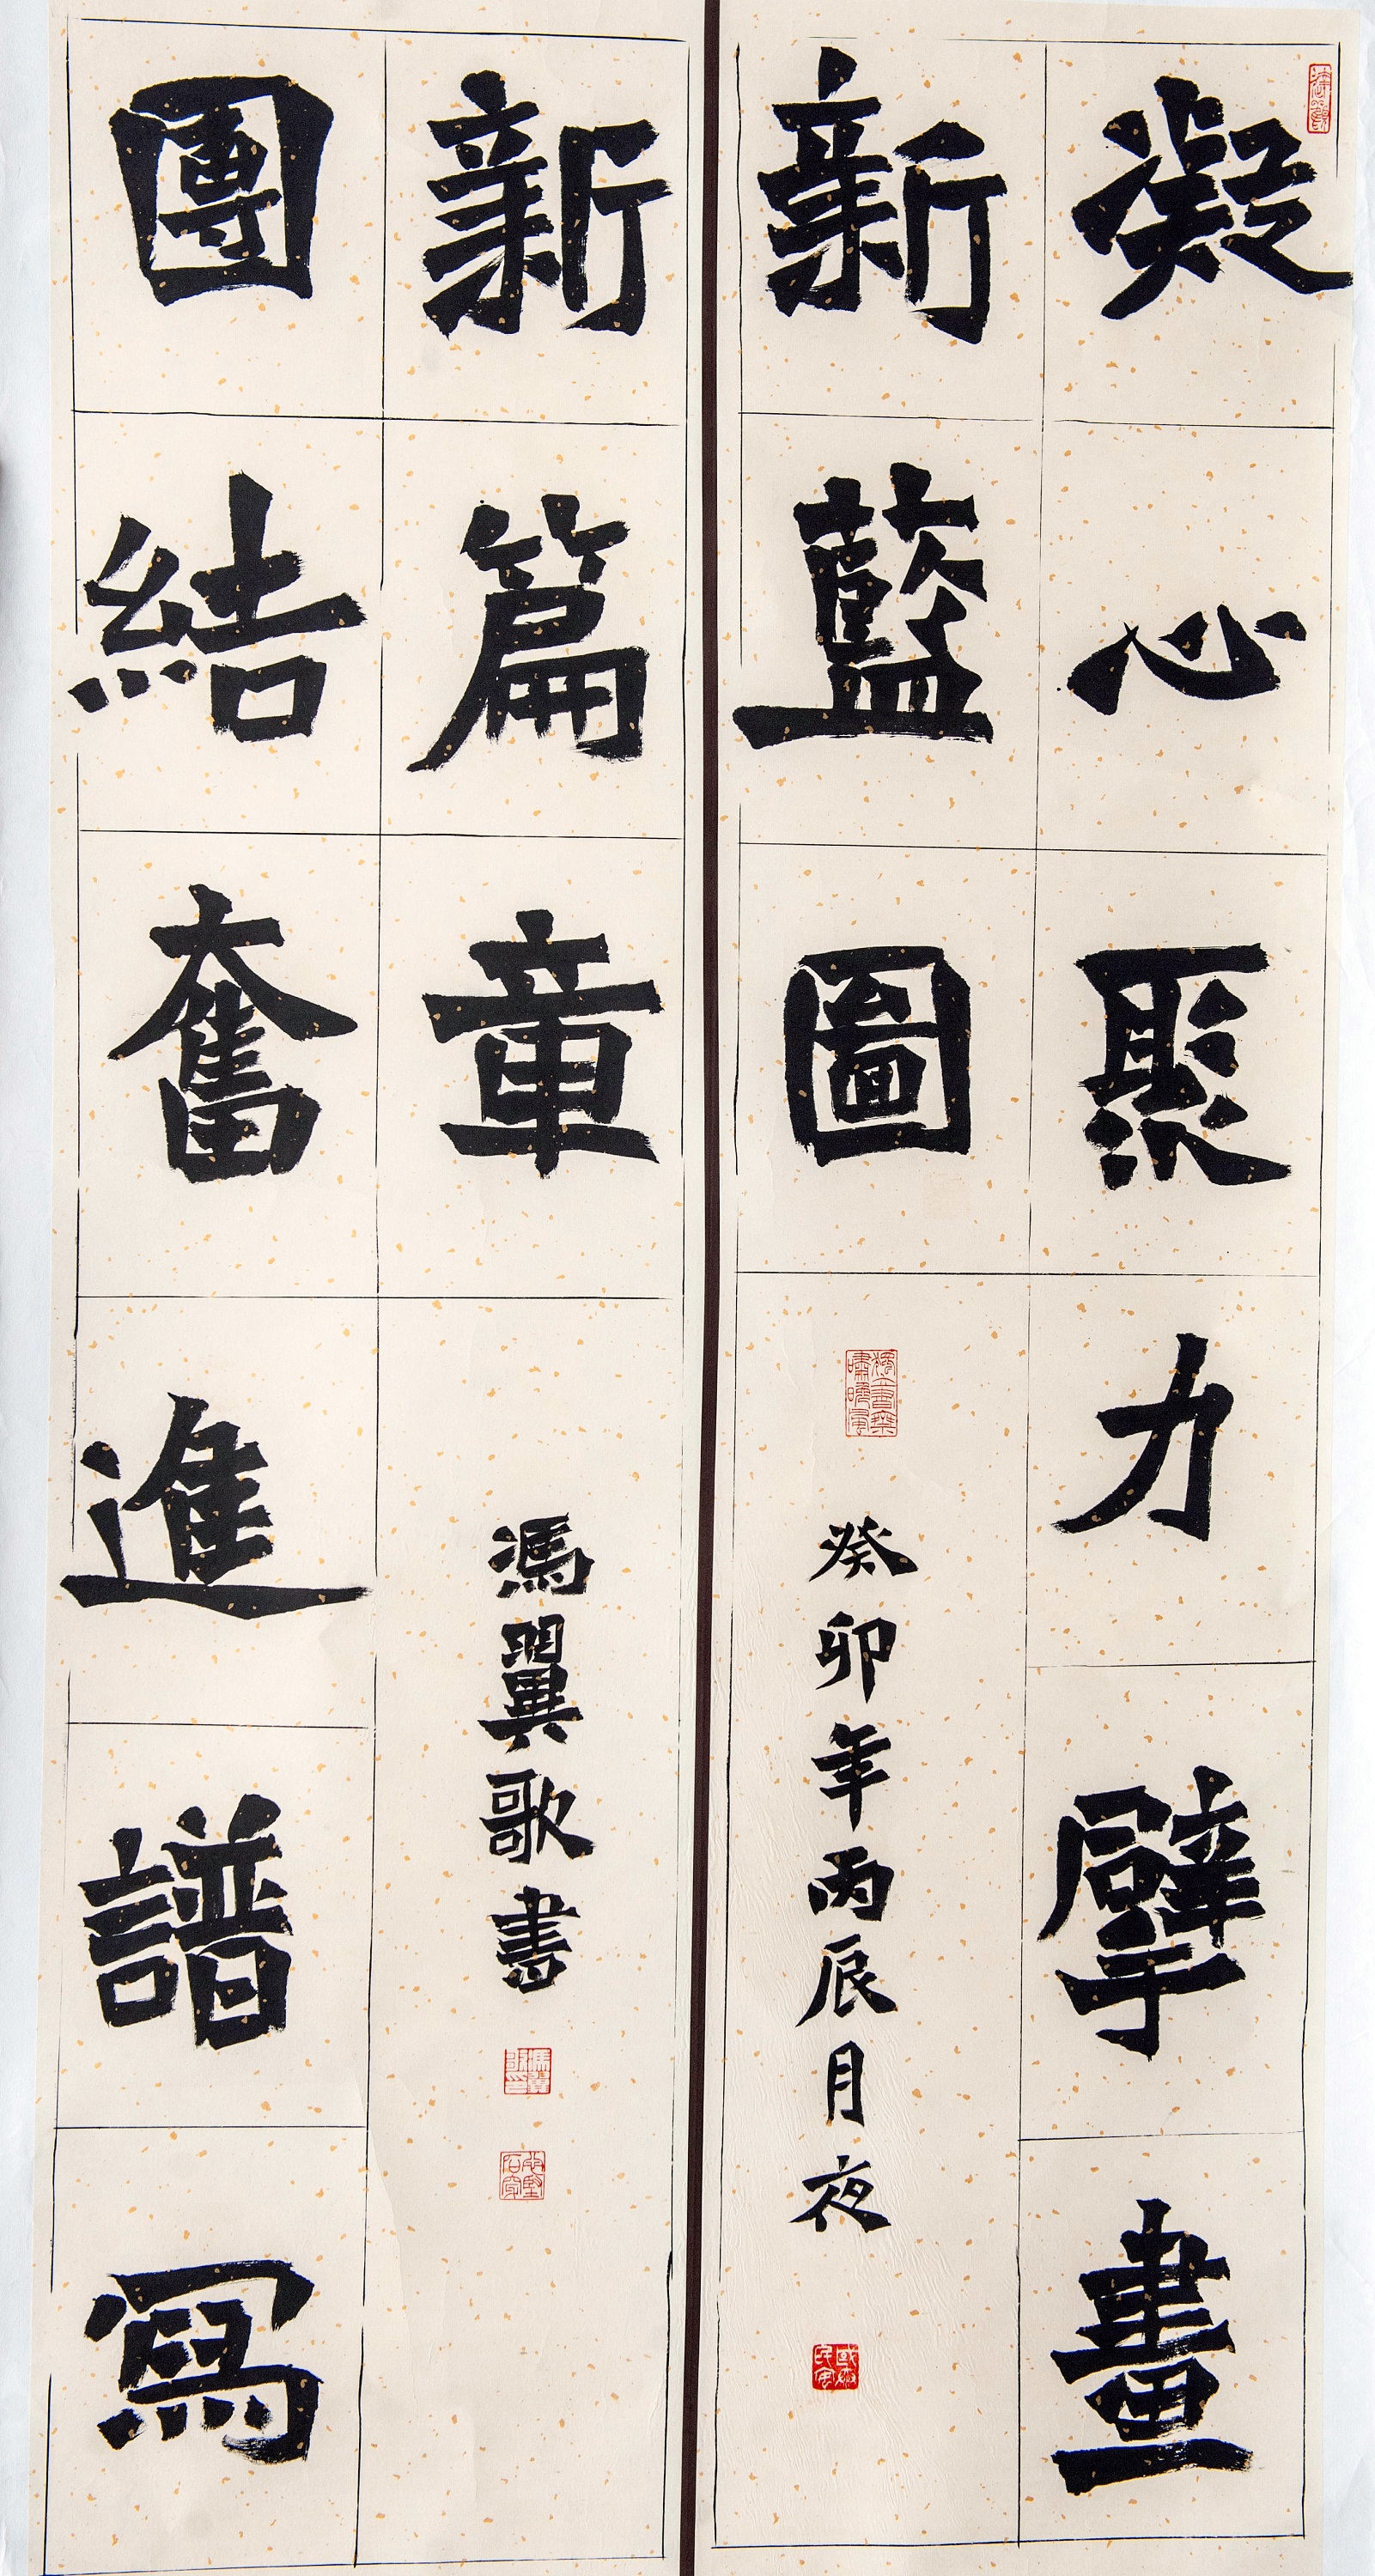 凝心聚力擘畫
新藍圖
癸卯年丙辰月夜
團結奮進譜寫
新篇章
馮翼歌書